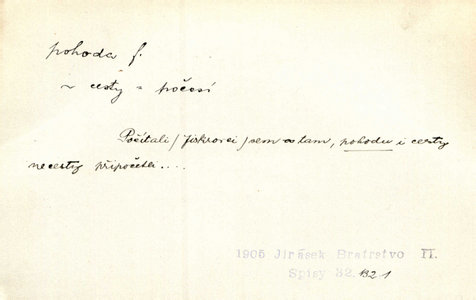 pohoda f.
~ cesty = počasí
Počítali / Jiskrovci / sem a tam, pohodu i cesty
necesty připočetli....
1905 Jirásek Bratrstvo II.
Spisy 32. 132 1